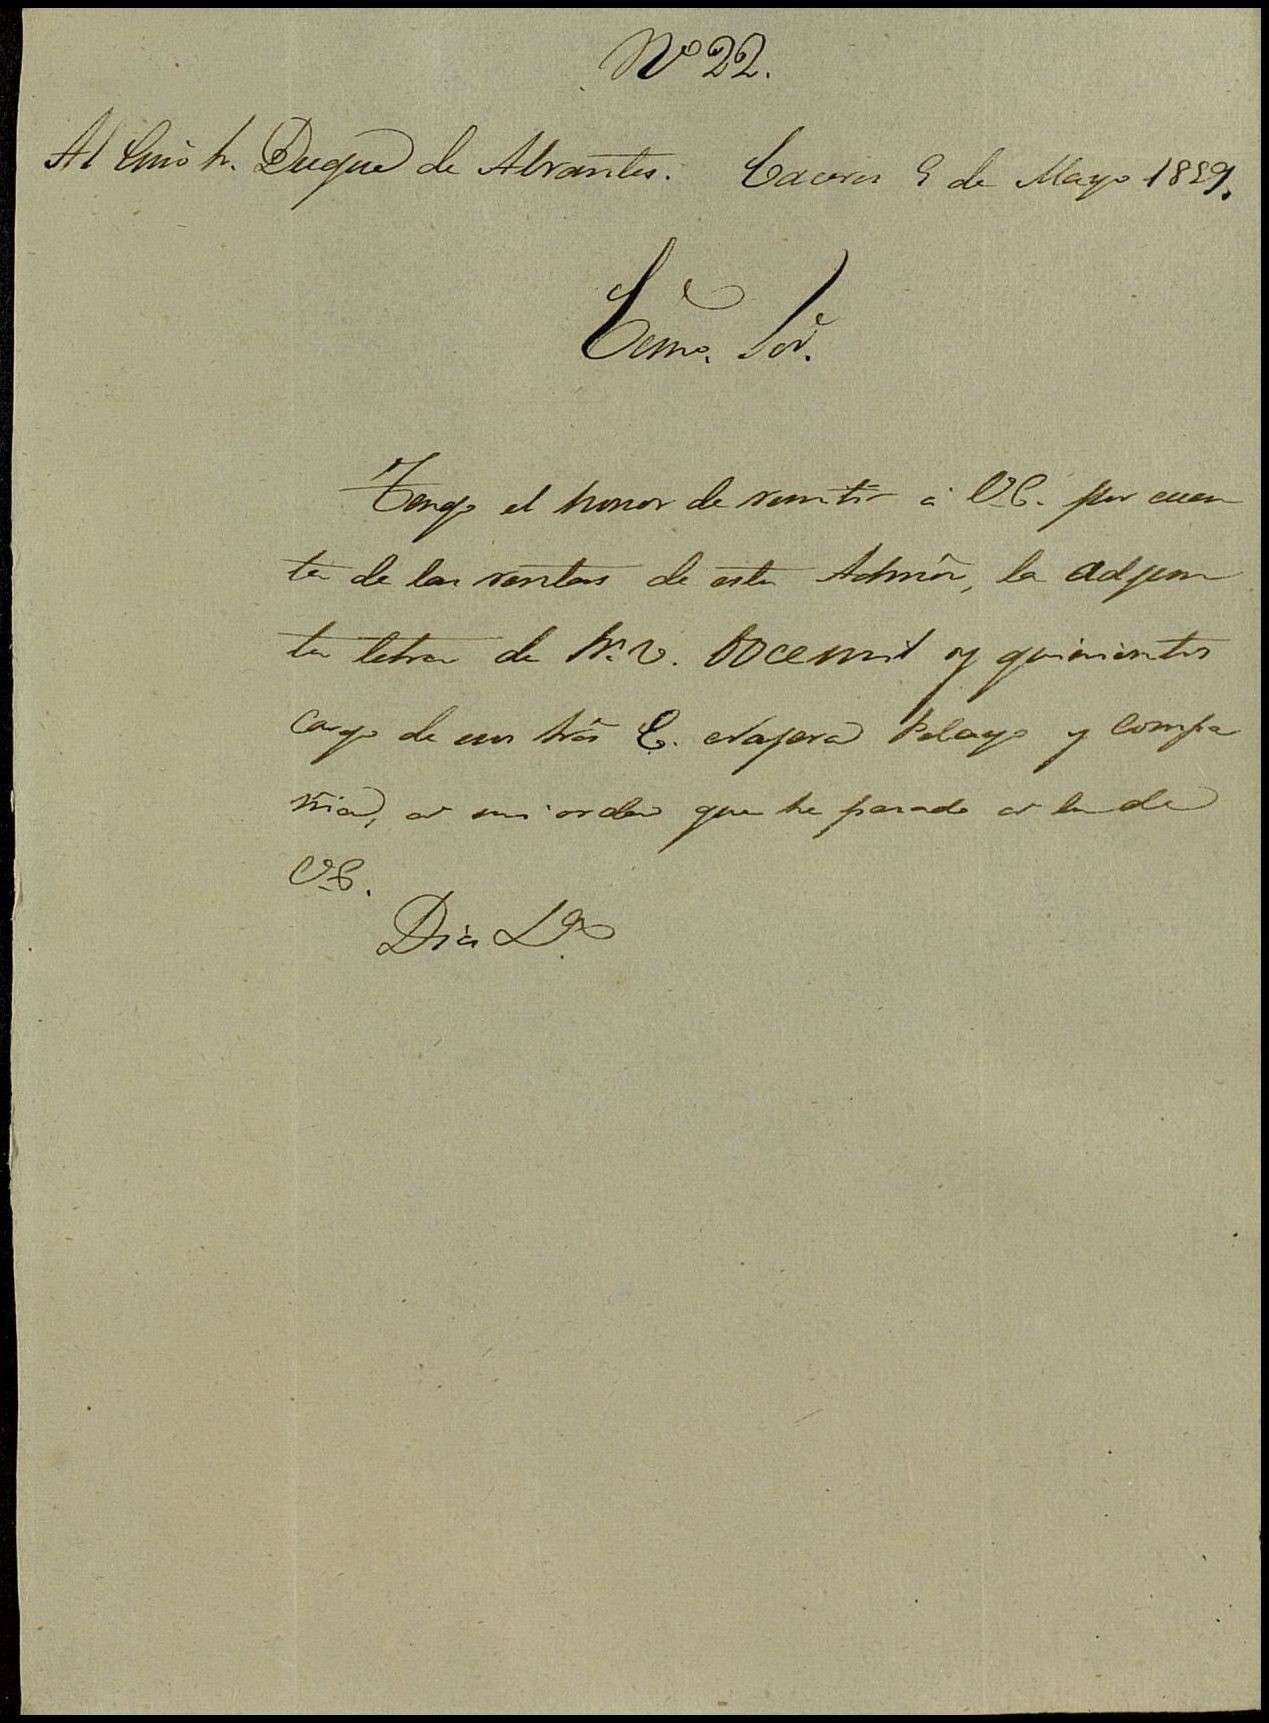 Nº 22.
Al Exmo Sr. Duque de Abrantes. Caceres 9 de Mayo 1859.
Exmo. Sor.
Tengo el honor de remitir á V.E. por cuen
ta de las rentas de esta Admōn, la adjun
ta letra de R.s v. Doce mil y quinientos
cargo de los Sres E. Najera Pelayo y compa
ñia, a mi orden que he pasado a la de
V.E.
Dios